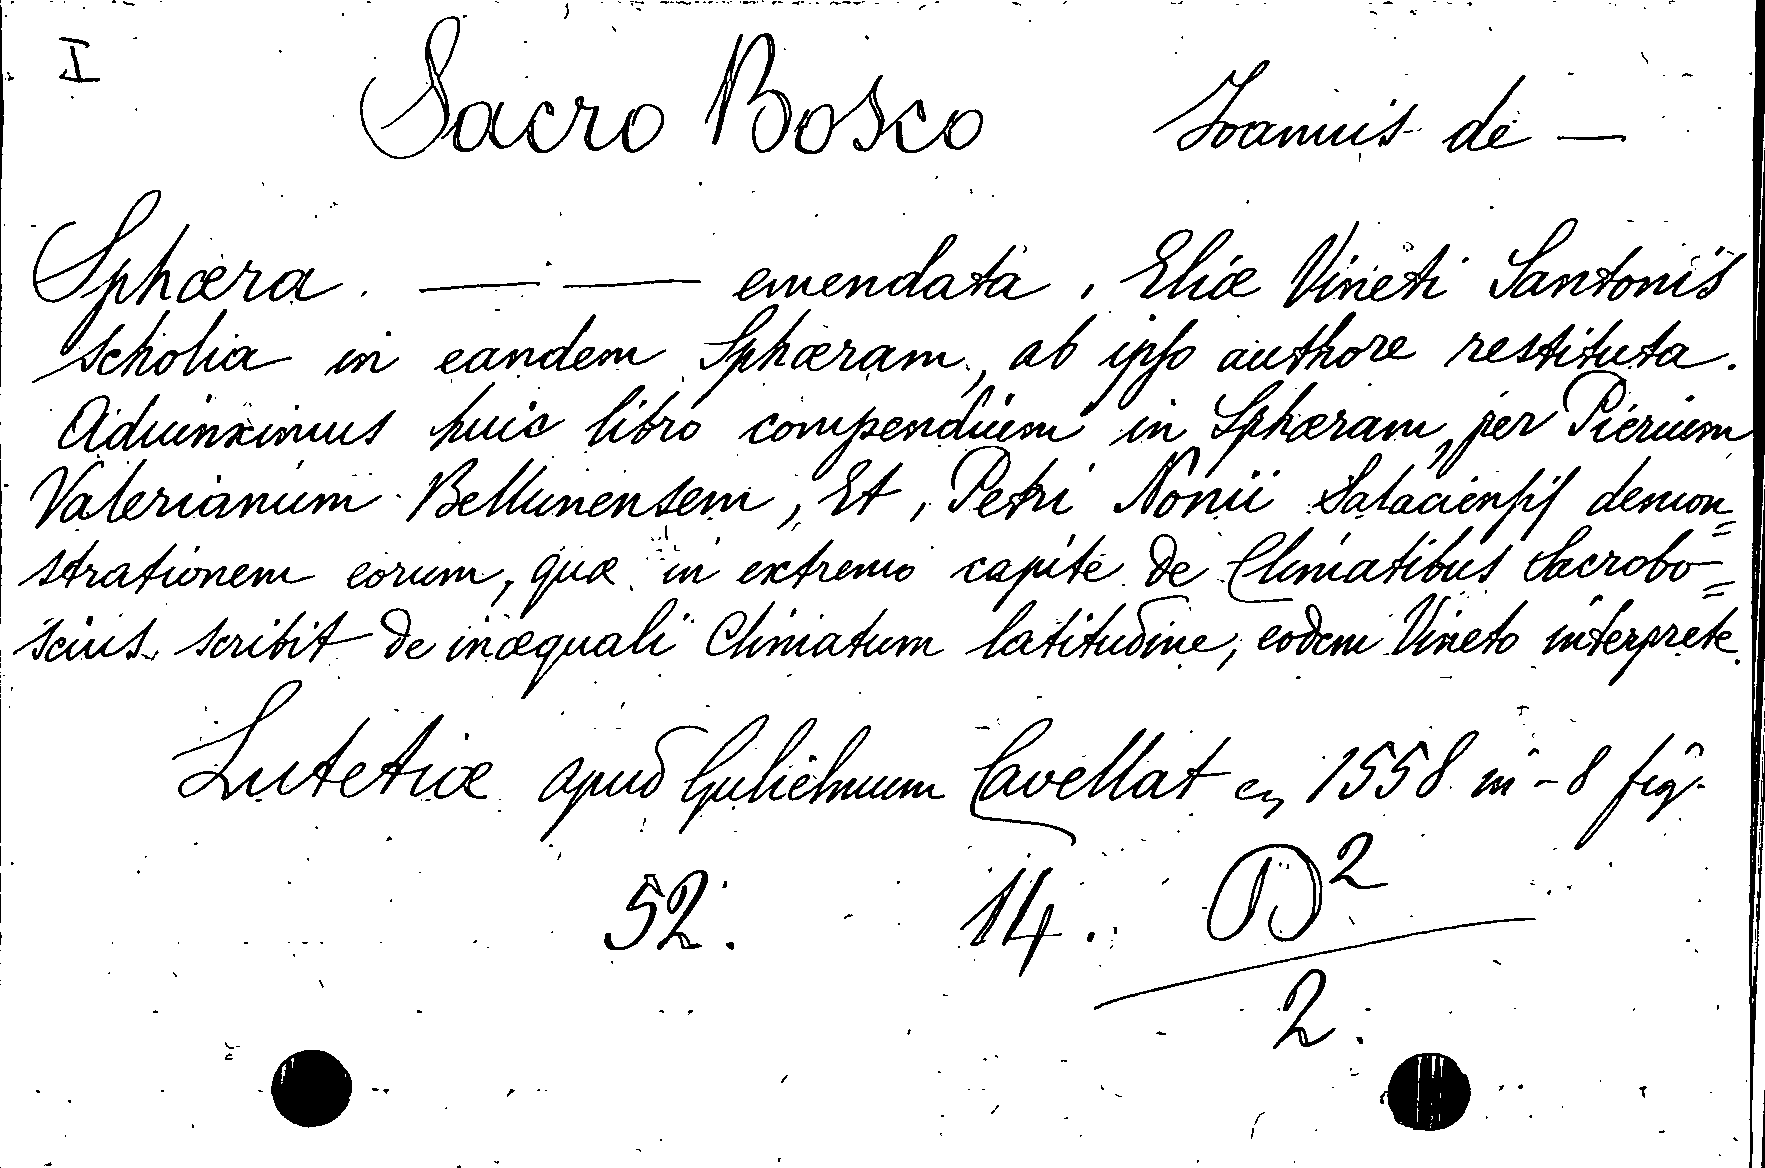 I
Sacro Bosco Ioannis de —
Sphæra. — — emendata, Eliæ Vineti Santonis
scholia in eandem Sphæram, ab ipso authore restituta.
Adiunximus huic libro compendium in Sphæram, per Pierium
Valerianum Bellunensem, Et, Petri Nonii Salaciensis demon=
strationem eorum, quæ in extremo capite de Climatibus Sacrobo=
scius scribit de inæquali Climatum latitudine, eodem Vineto interprete.
Lutetiæ apud Gulielmum Cavellat en 1558 in-8 fig.
52. 14. D²
2.